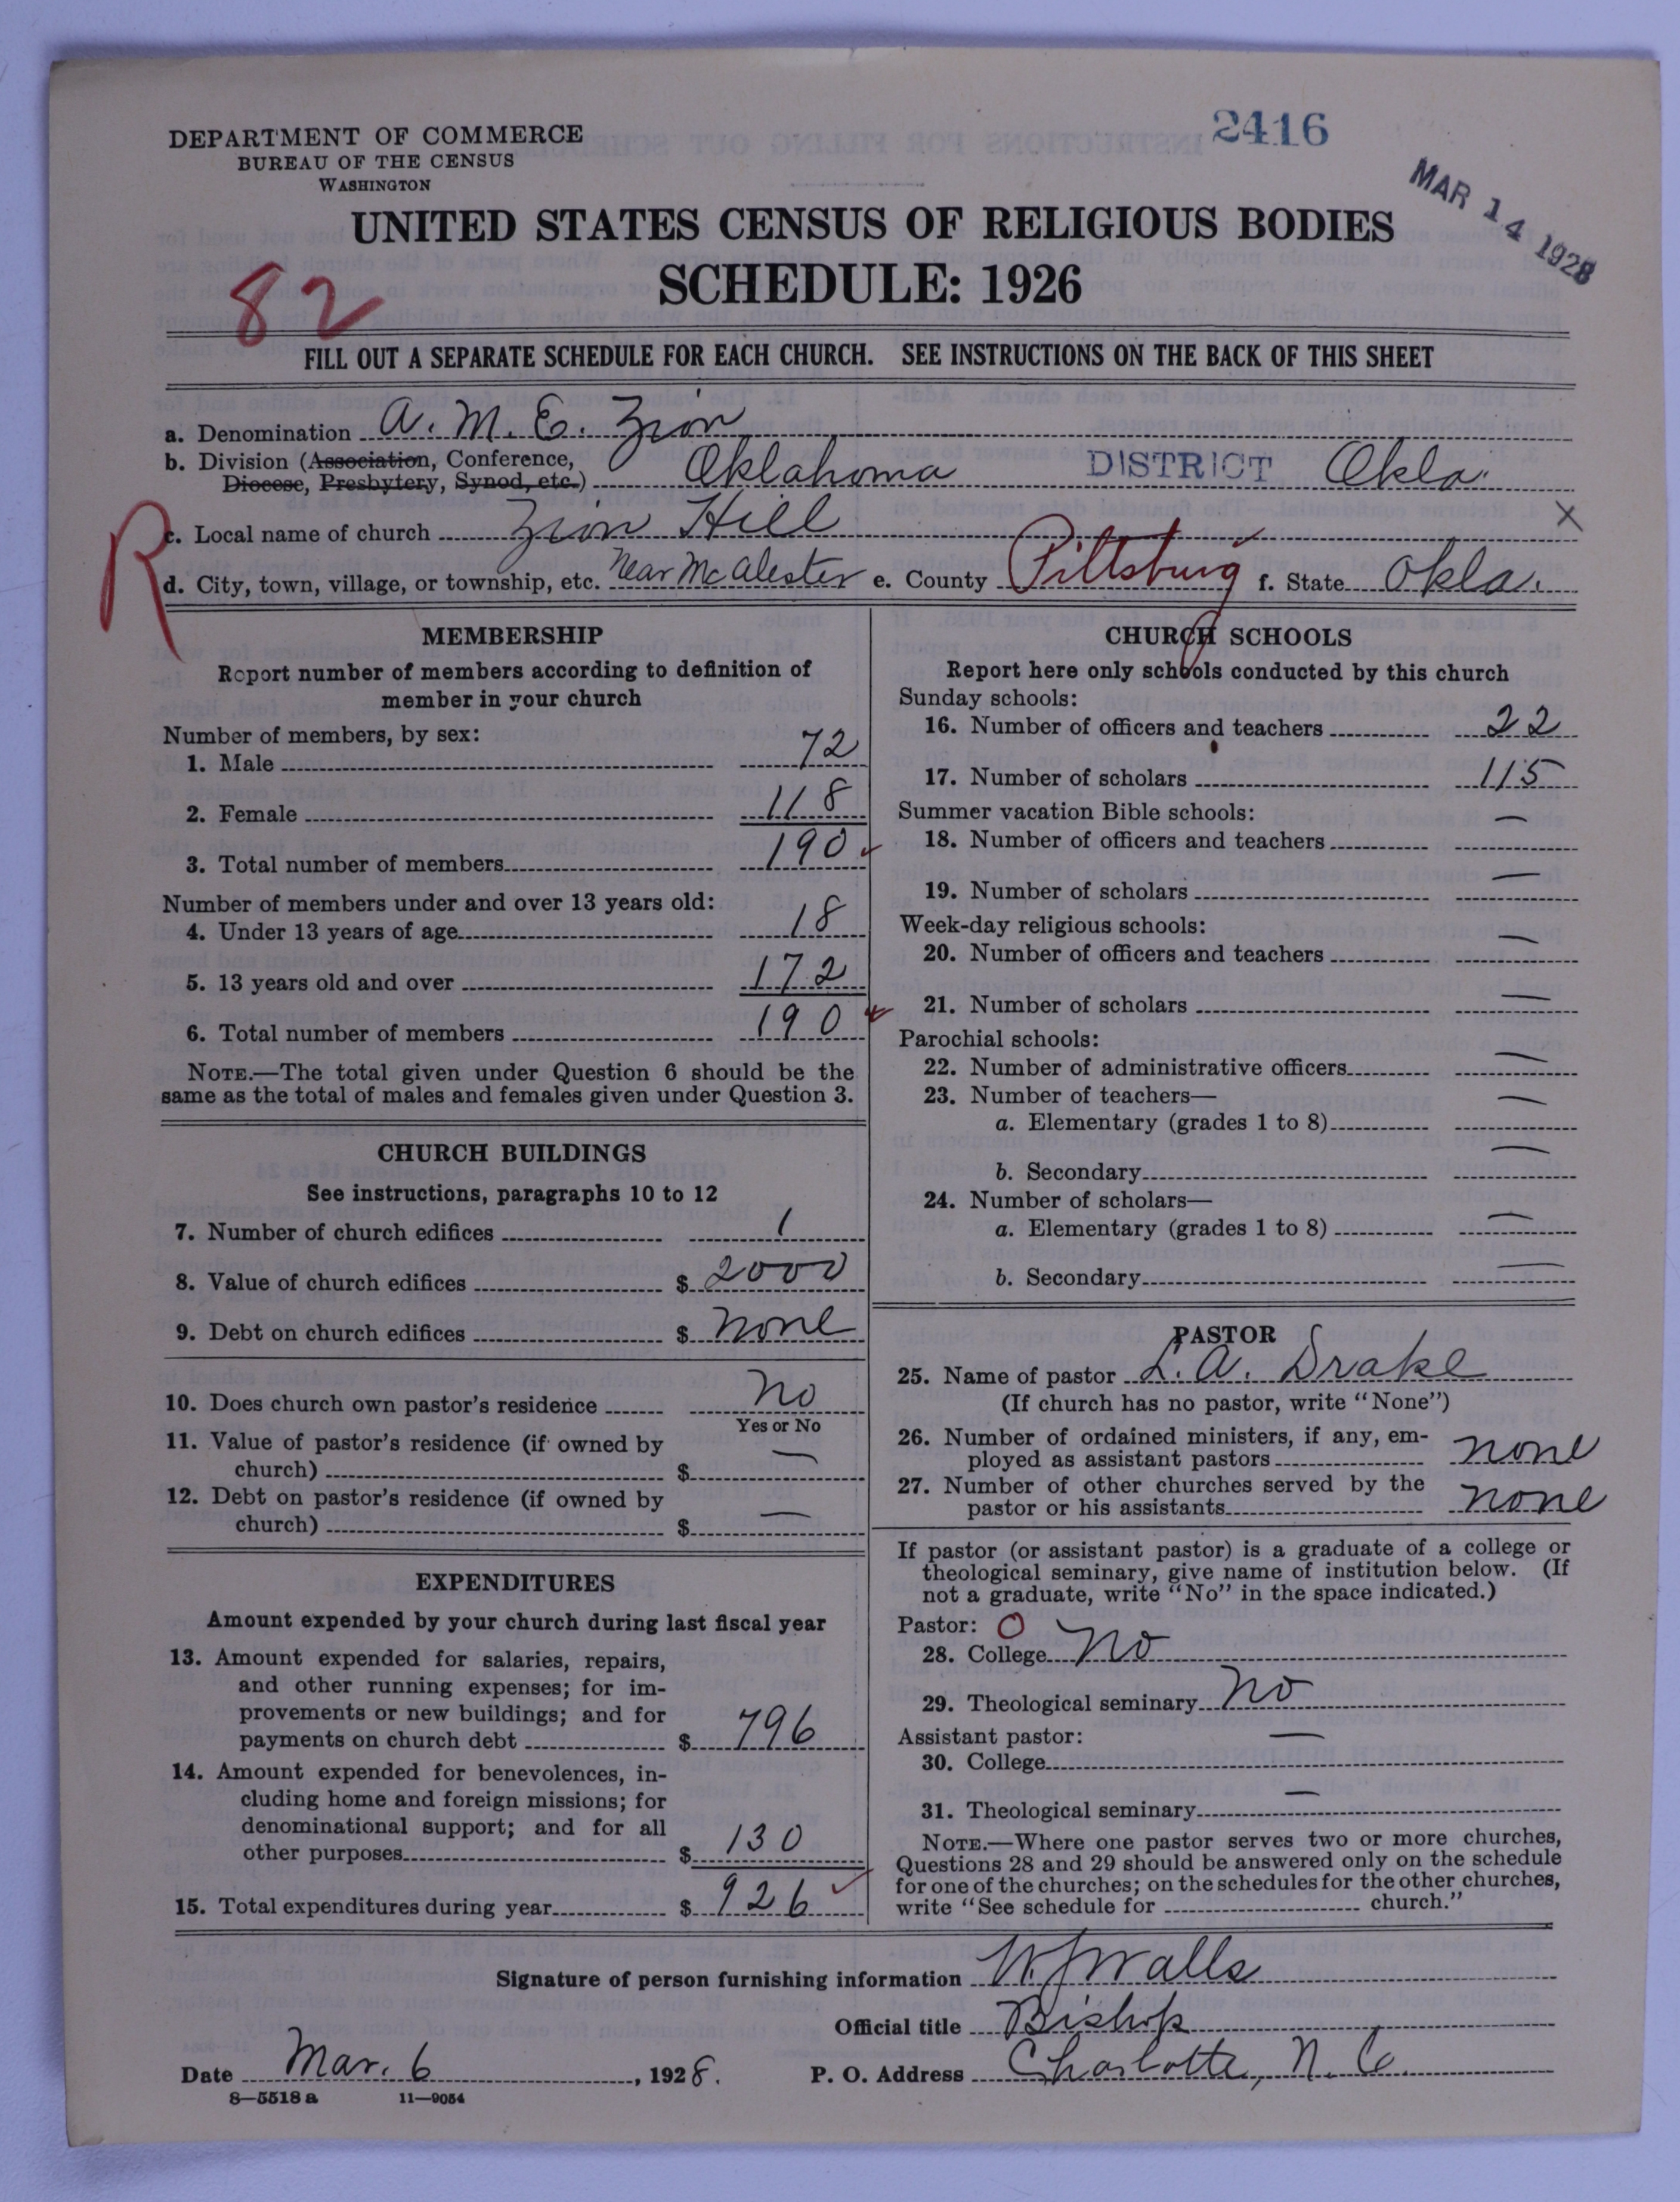 2416
MAR 14 1928
DEPARTMENT OF COMMERCE
BUREAU OF THE CENSUS
WASHINGTON
UNITED STATES CENSUS OF RELIGIOUS BODIES
SCHEDULE: 1926
82
FILL OUT A SEPARATE SCHEDULE FOR EACH CHURCH. SEE INSTRUCTIONS ON THE BACK OF THIS SHEET
a. Denomination A. M. E. Zion
b. Division (Association, Conference, Diocese, Presbytery, Synod, etc.) Oklahoma DISTRICT Okla.
R
c. Local name of church Zion Hill X
d. City, town, village, or township, etc. Near McAlester e. County Pittsburg f. State Okla.
MEMBERSHIP
Report number of members according to definition of
member in your church
Number of members, by sex:
1. Male 72
2. Female 118
3. Total number of members 190
Number of members under and over 13 years old:
4. Under 13 years of age 18
5. 13 years old and over 172
6. Total number of members 190
NOTE.—The total given under Question 6 should be the
same as the total of males and females given under Question 3.
CHURCH BUILDINGS
See instructions, paragraphs 10 to 12
7. Number of church edifices 1
8. Value of church edifices $ 2000
9. Debt on church edifices $ none
10. Does church own pastor's residence No
Yes or No
11. Value of pastor's residence (if owned by
church) $ —
12. Debt on pastor's residence (if owned by
church) $ —
EXPENDITURES
Amount expended by your church during last fiscal year
13. Amount expended for salaries, repairs,
and other running expenses; for im-
provements or new buildings; and for
payments on church debt $ 796
14. Amount expended for benevolences, in-
cluding home and foreign missions; for
denominational support; and for all
other purposes $ 130
15. Total expenditures during year $ 926
CHURCH SCHOOLS
Report here only schools conducted by this church
Sunday schools:
16. Number of officers and teachers 22
17. Number of scholars 115
Summer vacation Bible schools:
18. Number of officers and teachers —
19. Number of scholars —
Week-day religious schools:
20. Number of officers and teachers —
21. Number of scholars —
Parochial schools:
22. Number of administrative officers —
23. Number of teachers—
a. Elementary (grades 1 to 8) —
b. Secondary —
24. Number of scholars—
a. Elementary (grades 1 to 8) —
b. Secondary —
PASTOR
25. Name of pastor L. A. Drake
(If church has no pastor, write "None")
26. Number of ordained ministers, if any, em-
ployed as assistant pastors none
27. Number of other churches served by the
pastor or his assistants none
If pastor (or assistant pastor) is a graduate of a college or
theological seminary, give name of institution below. (If
not a graduate, write "No" in the space indicated.)
Pastor: O
28. College No
29. Theological seminary No
Assistant pastor:
30. College —
31. Theological seminary —
NOTE.—Where one pastor serves two or more churches,
Questions 28 and 29 should be answered only on the schedule
for one of the churches; on the schedules for the other churches,
write "See schedule for church."
Signature of person furnishing information W. J. Walls
Official title Bishop
Date Mar. 6, 1928. P. O. Address Charlotte, N. C.
8—5518 a 11—9054